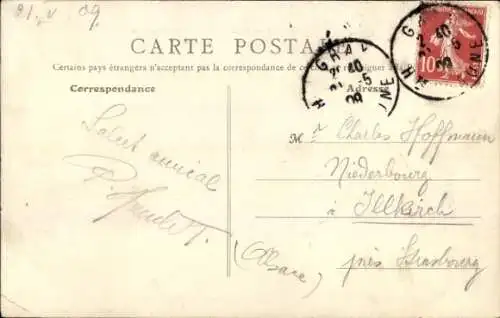 21. V 09
CARTE POSTALE
Certains pays étrangers n'acceptent pas la correspondance de ce
Correspondance
Adresse
10
Salut amical
Mr Charles Hoffmann
Niederbourg
à Illkirch
(Alsace)
près Strasbourg